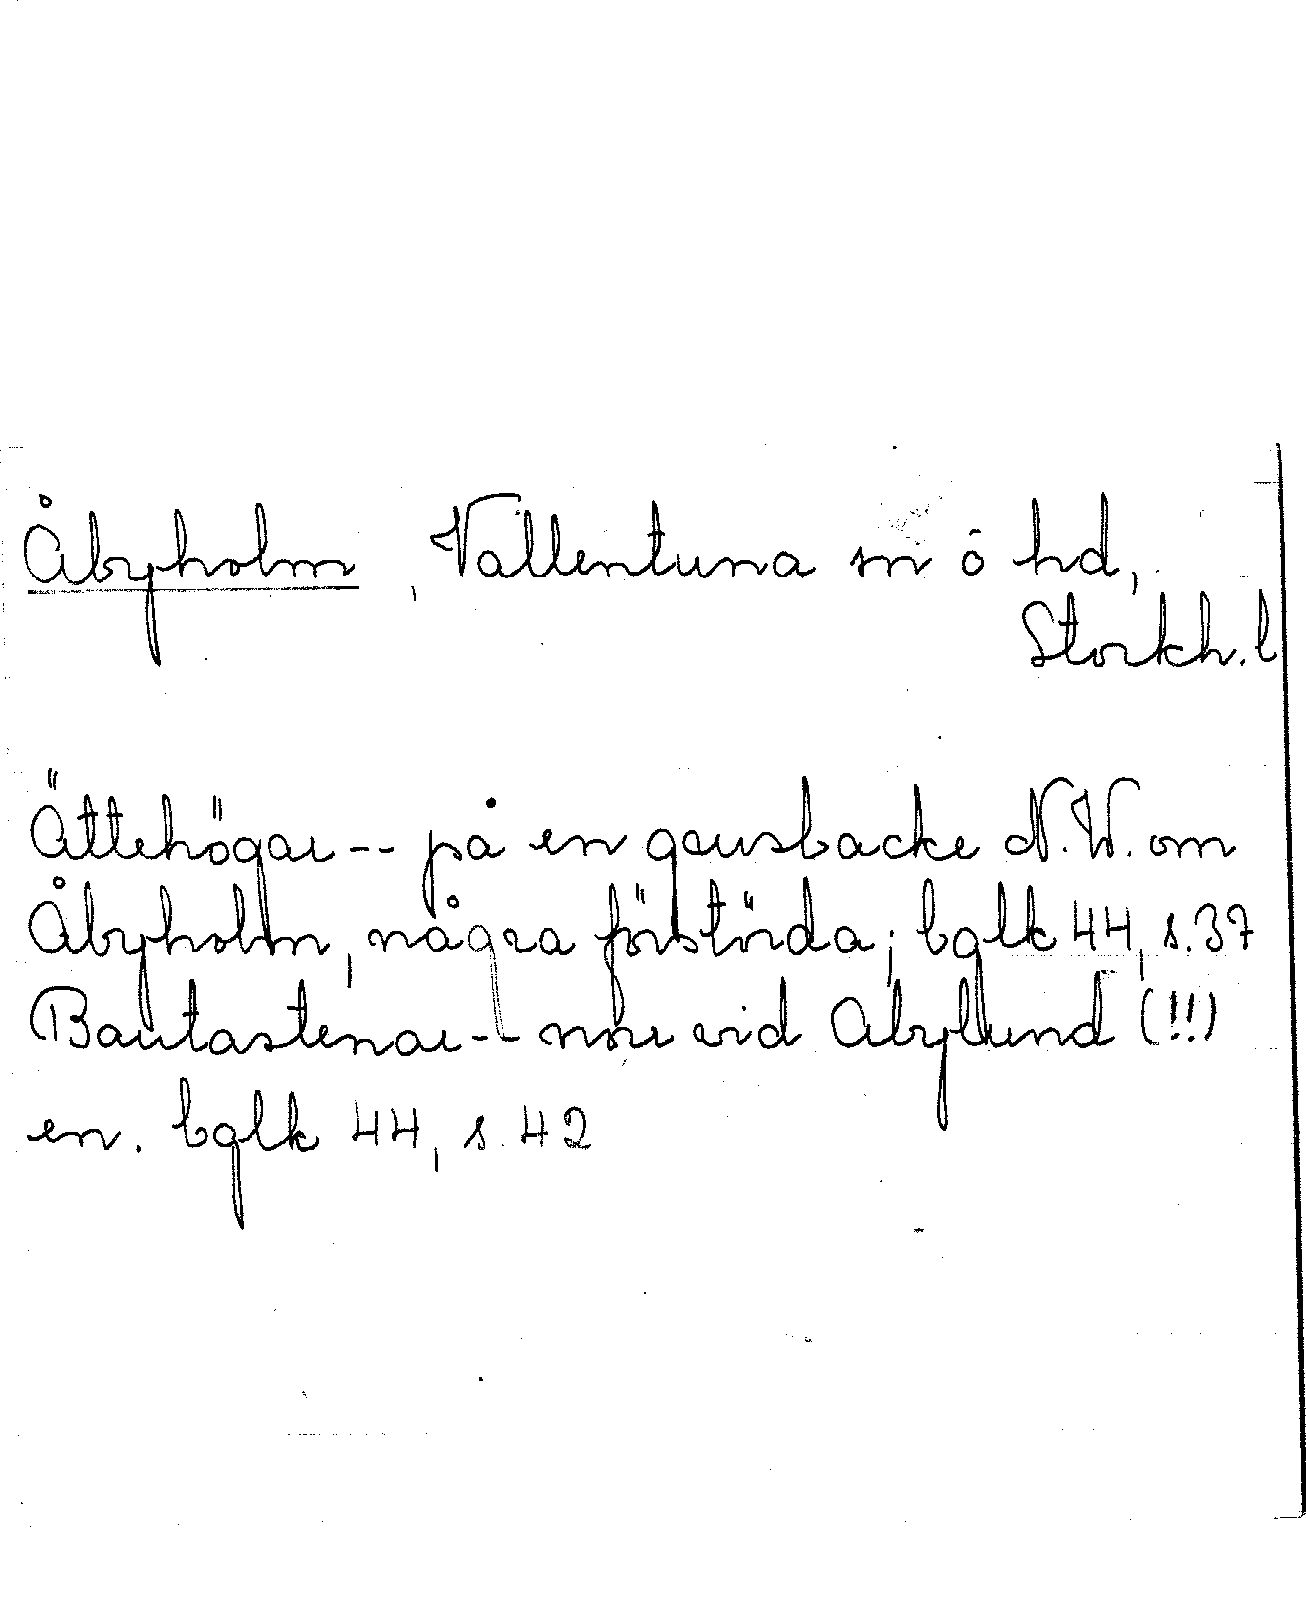 Åbyholm, Vallentuna sn o hd,
Stockh. l
Ättehögar -- på en grusbacke N.W. om
Åbyholm, några förstörda; bglk 44, s. 37
Bautastenar -- vid Abylund (!!)
en. bglk 44, s. 42